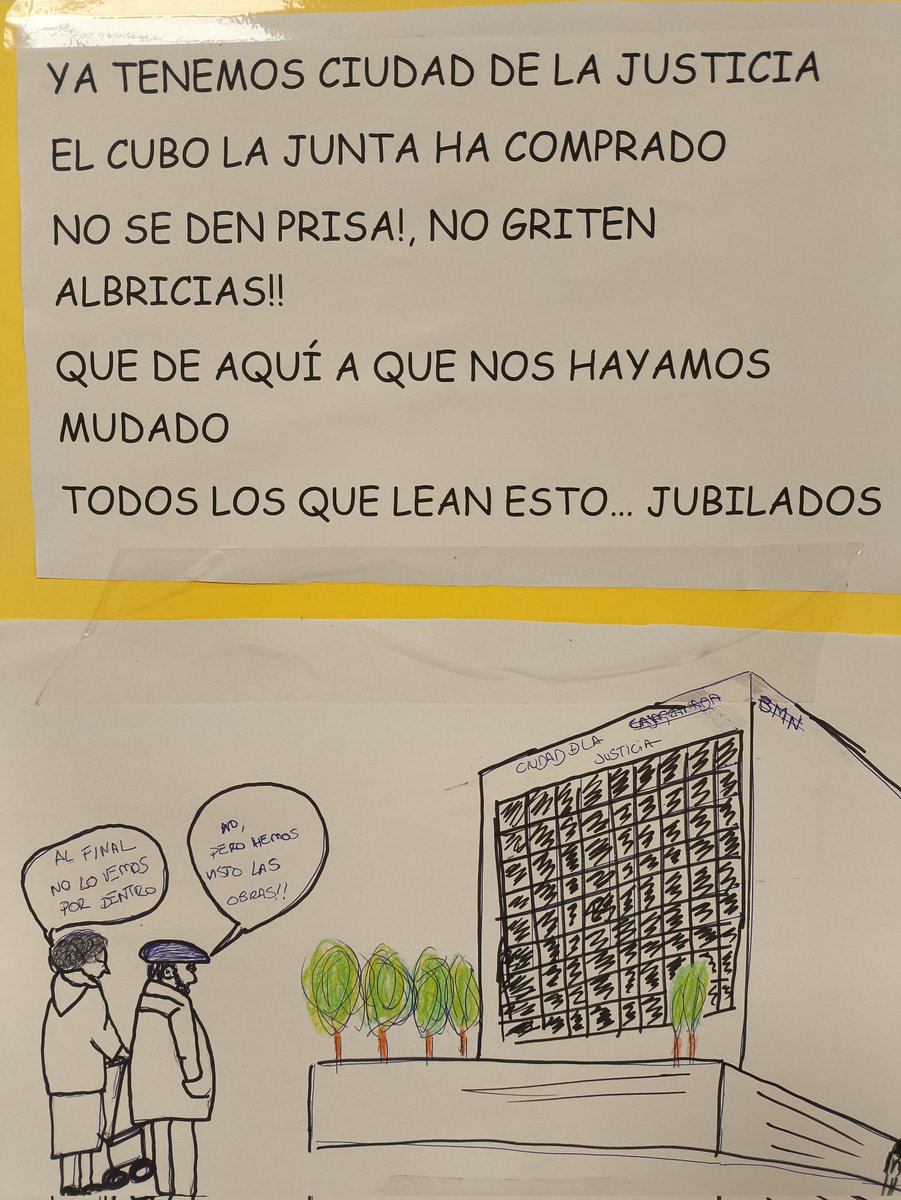 YA TENEMOS CIUDAD DE LA JUSTICIA
EL CUBO LA JUNTA HA COMPRADO
NO SE DEN PRISA!, NO GRITEN
ALBRICIAS!!
QUE DE AQUÍ A QUE NOS HAYAMOS
MUDADO
TODOS LOS QUE LEAN ESTO... JUBILADOS
AL FINAL
NO LO VEMOS
POR DENTRO
NO,
PERO HEMOS
VISTO LAS
OBRAS!!
CIUDAD D LA
JUSTICIA
BMN